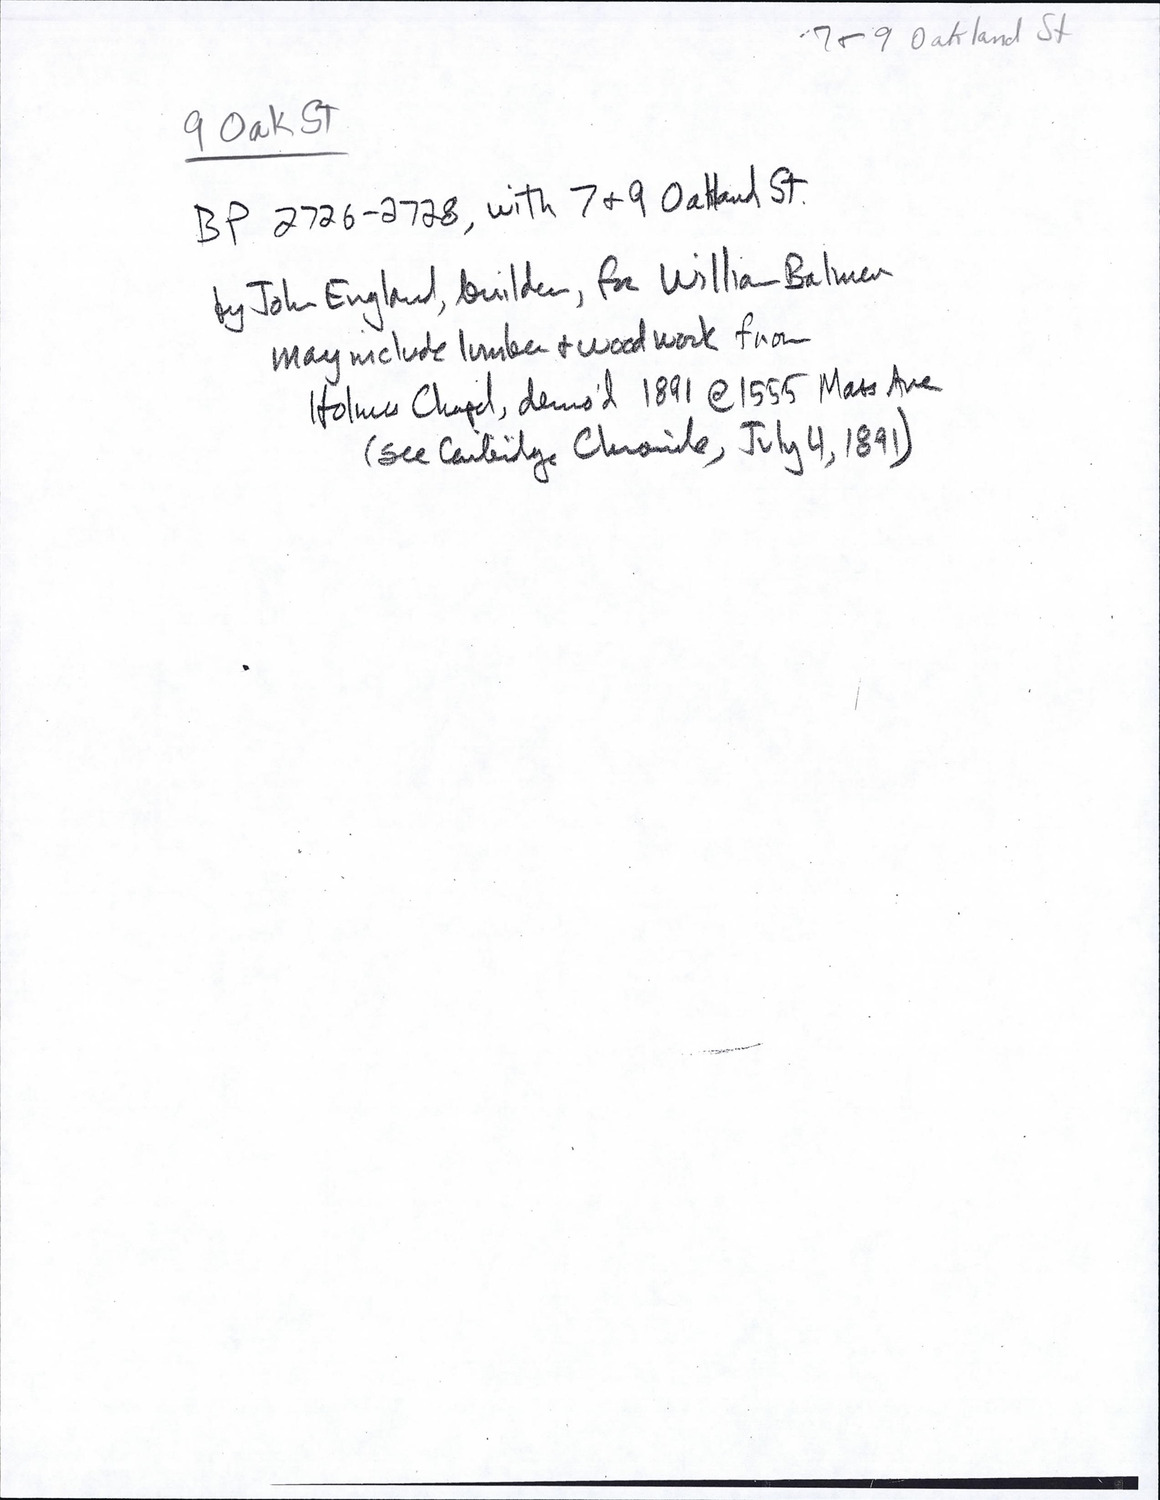 7 + 9 Oakland St
9 Oak St
BP 2726-2728, with 7 + 9 Oakland St.
by John England, builder, for William Balmer
may include lumber + woodwork from
Holmes Chapel, demo'd 1891 @ 1555 Mass Ave
(see Cambridge Chronicle, July 4, 1891)